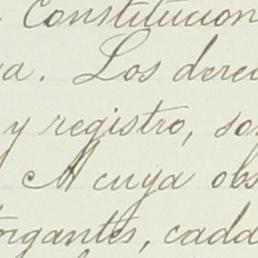 Constitucion
a. Los derec
y registro, so
A cuya obs
organtes, cadd